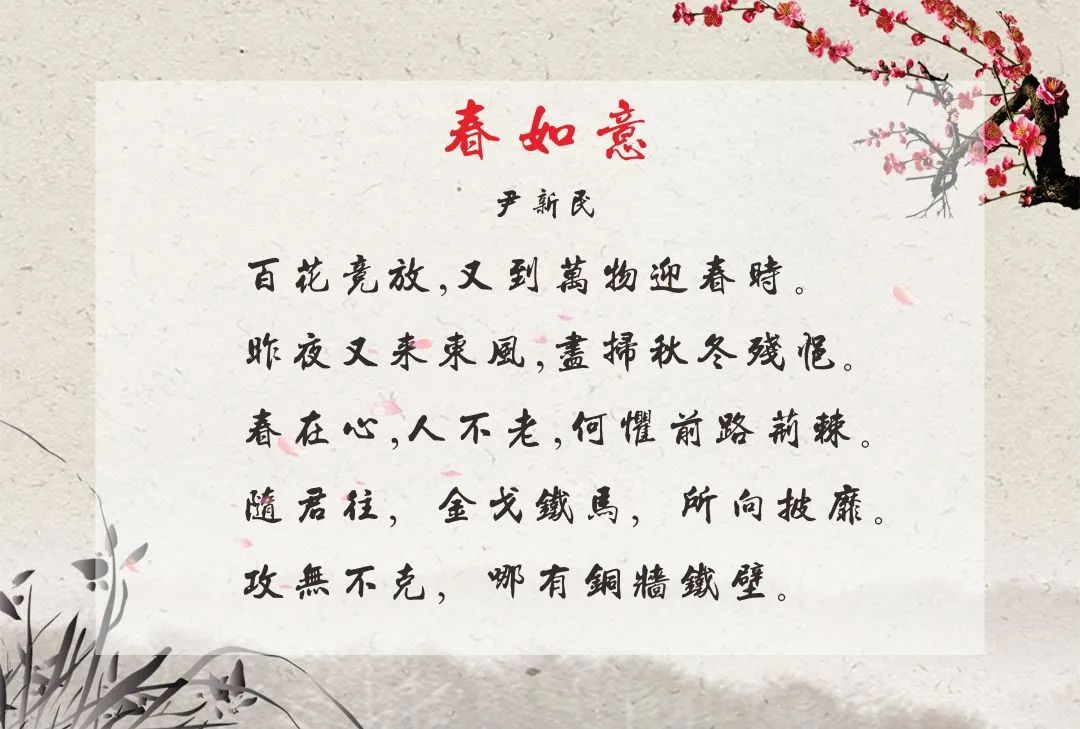 春如意
尹新民
百花竞放,又到萬物迎春時。
昨夜又来東風,盡掃秋冬殘悒。
春在心,人不老,何懼前路荊棘。
隨君往,金戈鐵馬,所向披靡。
攻無不克,哪有銅牆鐵壁。